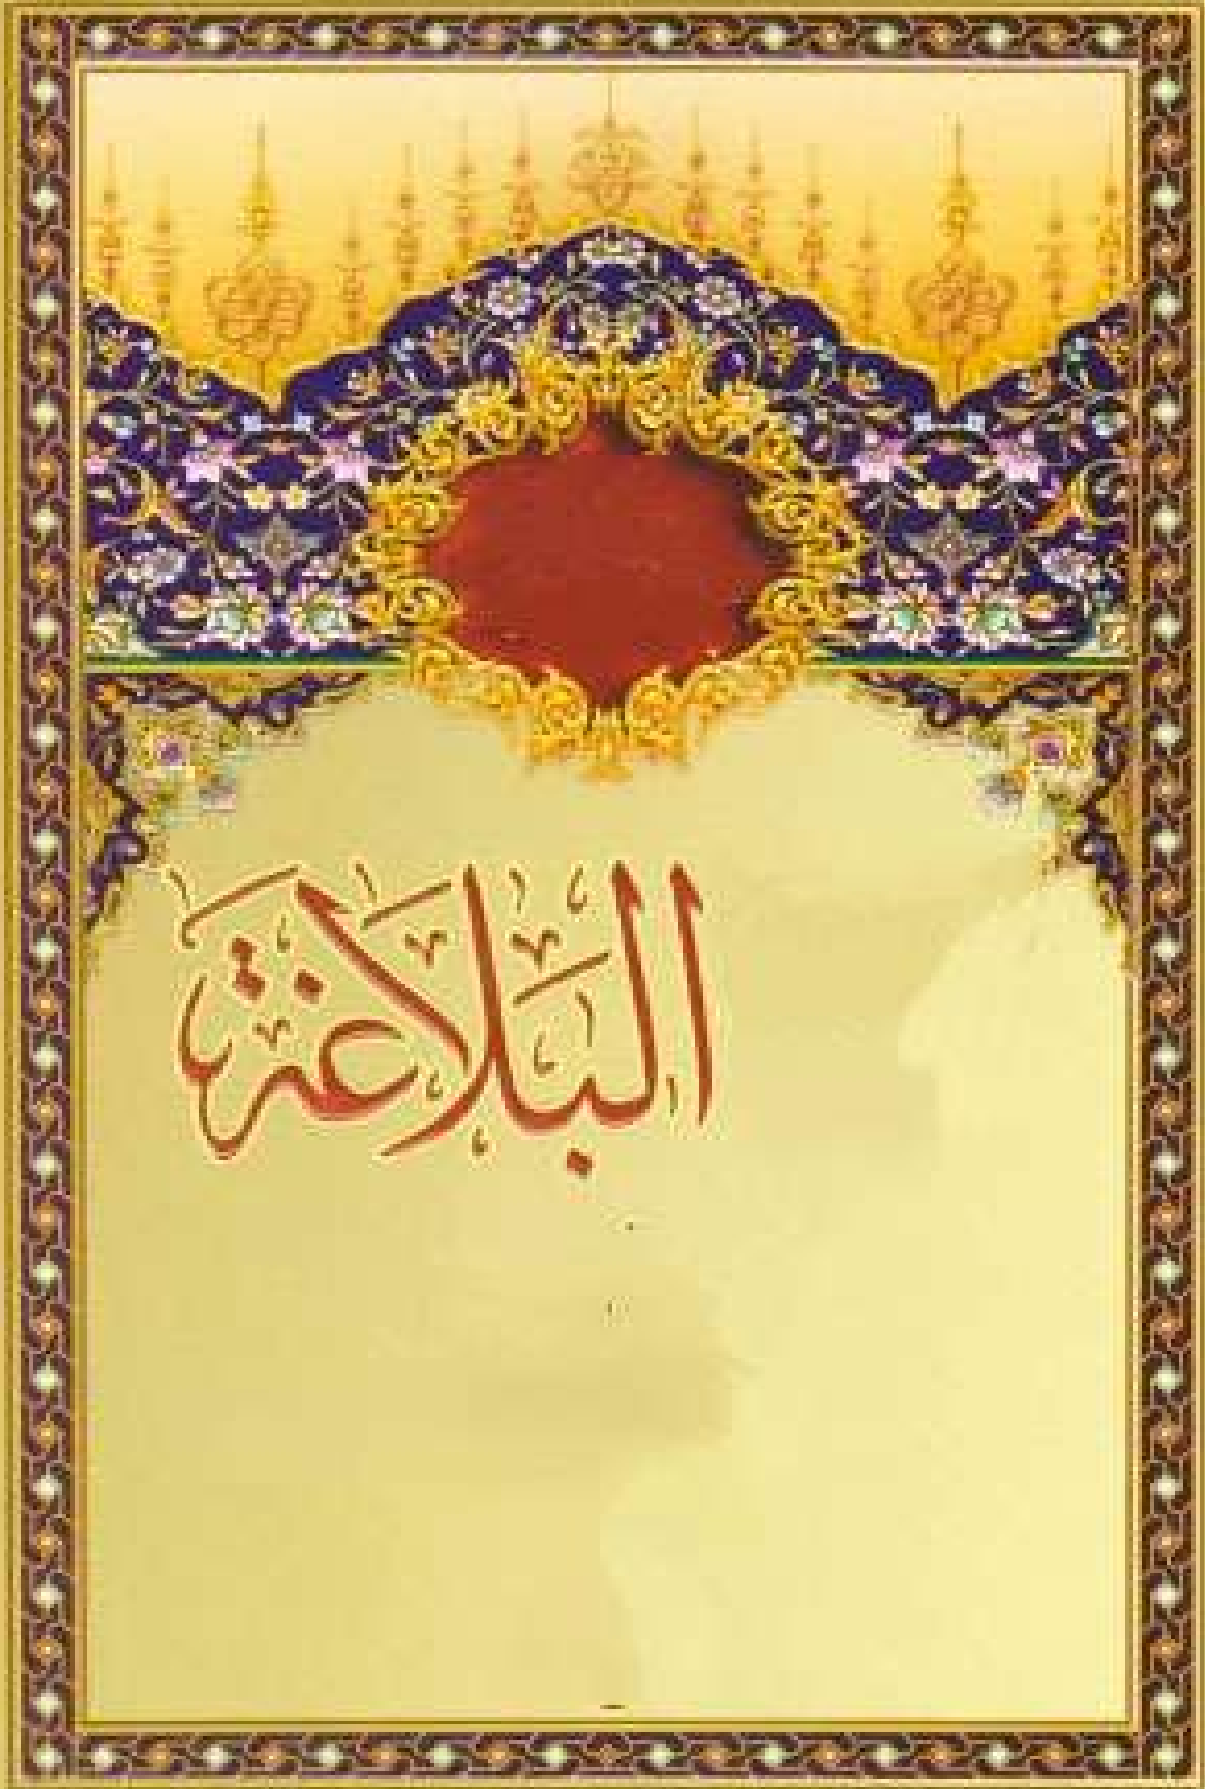 البلاغة